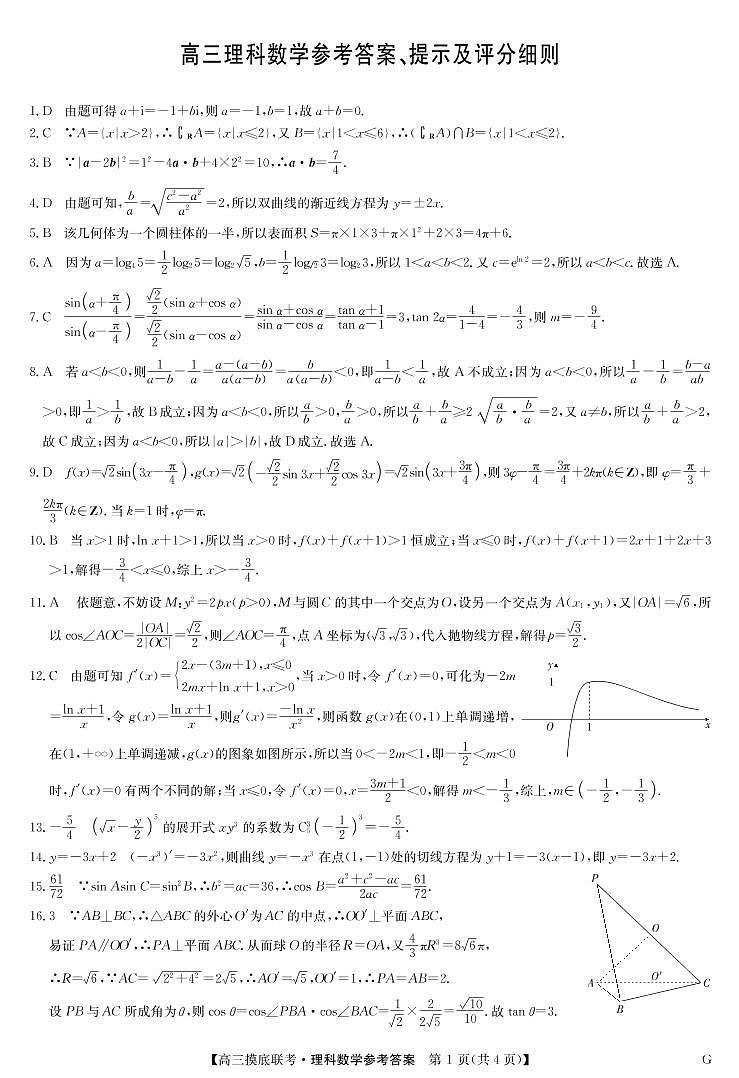 高三理科数学参考答案、提示及评分细则
1. D 由题可得 a+i=-1+bi,则 a=-1,b=1,故 a+b=0.
2. C ∵A={x|x>2},∴∁RA={x|x≤2},又 B={x|1<x≤6},∴(∁RA)∩B={x|1<x≤2}.
3. B ∵|a-2b|²=1²-4a·b+4×2²=10,∴a·b=7/4.
4. D 由题可知,b/a=√((c²-a²)/a²)=2,所以双曲线的渐近线方程为 y=±2x.
5. B 该几何体为一个圆柱体的一半,所以表面积 S=π×1×3+π×1²+2×3=4π+6.
6. A 因为 a=log₄5=1/2 log₂5=log₂√5,b=1/2 log√2 3=log₂3,所以 1<a<b<2. 又 c=e^(ln 2)=2,所以 a<b<c. 故选 A.
7. C sin(α+π/4)/sin(α-π/4)=(√2/2(sin α+cos α))/(√2/2(sin α-cos α))=(sin α+cos α)/(sin α-cos α)=(tan α+1)/(tan α-1)=3,tan 2α=4/(1-4)=-4/3,则 m=-9/4.
8. A 若 a<b<0,则1/(a-b)-1/a=(a-(a-b))/(a(a-b))=b/(a(a-b))<0,即1/(a-b)<1/a,故 A 不成立;因为 a<b<0,所以1/a-1/b=(b-a)/ab
>0,即1/a>1/b,故 B 成立;因为 a<b<0,所以a/b>0,b/a>0,所以a/b+b/a≥2√(a/b·b/a)=2,又 a≠b,所以a/b+b/a>2,
故 C 成立;因为 a<b<0,所以|a|>|b|,故 D 成立. 故选 A.
9. D f(x)=√2sin(3x-π/4),g(x)=√2(-√2/2 sin 3x+√2/2 cos 3x)=√2sin(3x+3π/4),则 3φ-π/4=3π/4+2kπ(k∈Z),即 φ=π/3+
2kπ/3(k∈Z). 当 k=1 时,φ=π.
10. B 当 x>1 时,ln x+1>1,所以当 x>0 时,f(x)+f(x+1)>1 恒成立;当 x≤0 时,f(x)+f(x+1)=2x+1+2x+3
>1,解得-3/4<x≤0,综上 x>-3/4.
11. A 依题意,不妨设 M:y²=2px(p>0),M 与圆 C 的其中一个交点为 O,设另一个交点为 A(x₁,y₁),又|OA|=√6,所
以 cos∠AOC=|OA|/2|OC|=√2/2,则∠AOC=π/4,点 A 坐标为(√3,√3),代入抛物线方程,解得p=√3/2.
12. C 由题可知 f′(x)={2x-(3m+1),x≤0 2mx+ln x+1,x>0,当 x>0 时,令 f′(x)=0,可化为-2m
=(ln x+1)/x,令 g(x)=(ln x+1)/x,则g′(x)=(-ln x)/x²,则函数 g(x)在(0,1)上单调递增,
在(1,+∞)上单调递减,g(x)的图象如图所示,所以当 0<-2m<1,即-1/2<m<0
时,f′(x)=0 有两个不同的解;当 x≤0,令 f′(x)=0,x=(3m+1)/2<0,解得 m<-1/3,综上,m∈(-1/2,-1/3).
y
1
O 1 x
13. -5/4 (√x-y/2)⁵ 的展开式 xy³ 的系数为 C₅³(-1/2)³=-5/4.
14. y=-3x+2 (-x³)′=-3x²,则曲线 y=-x³ 在点(1,-1)处的切线方程为 y+1=-3(x-1),即 y=-3x+2.
15. 61/72 ∵sin Asin C=sin²B,∴b²=ac=36,∴cos B=(a²+c²-ac)/2ac=61/72.
16. 3 ∵AB⊥BC,∴△ABC 的外心 O′为 AC 的中点,∴OO′⊥平面 ABC,
易证 PA∥OO′,∴PA⊥平面 ABC. 从而球 O 的半径 R=OA,又4/3πR³=8√6π,
∴R=√6,∵AC=√(2²+4²)=2√5,∴AO′=√5,OO′=1,∴PA=AB=2.
设 PB 与 AC 所成角为 θ,则 cos θ=cos∠PBA·cos∠BAC=1/√2×2/2√5=√10/10. 故 tan θ=3.
P
O
A O′ C
B
【高三摸底联考·理科数学参考答案 第 1 页(共 4 页)】 G